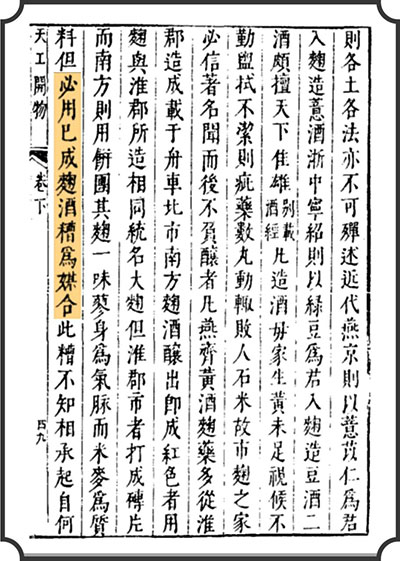 則各土各法亦不可殫述近代燕京則以薏苡仁爲君
入麴造薏酒浙中寧紹則以綠豆爲君入麴造豆酒二
酒頗擅天下佳雄別載酒經凡造酒母家生黃未足視候不
勤盥拭不潔則疵藥數丸動輒敗人石米故市麴之家
必信著名聞而後不負釀者凡燕齊黃酒麴藥多從淮
郡造成載于舟車北市南方麴酒釀出卽成紅色者用
麴與淮郡所造相同統名大麴但淮郡市者打成磚片
而南方則用餅團其麴一味蓼身爲氣脈而米麥爲質
料但必用已成麴酒糟爲媒合此糟不知相承起自何
天工開物 卷下 四九